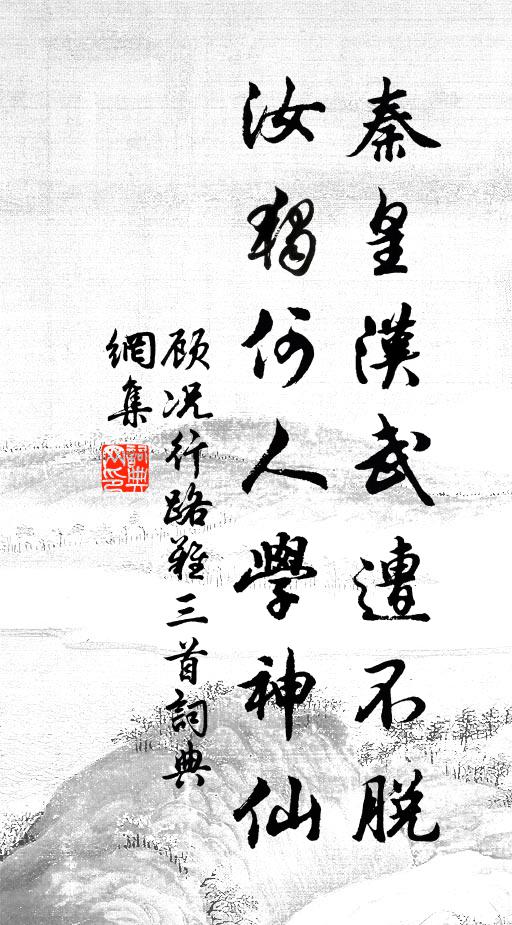 秦皇漢武遭不脫
汝獨何人學神仙
顾况行路難三首詞典
網集
詞典网印